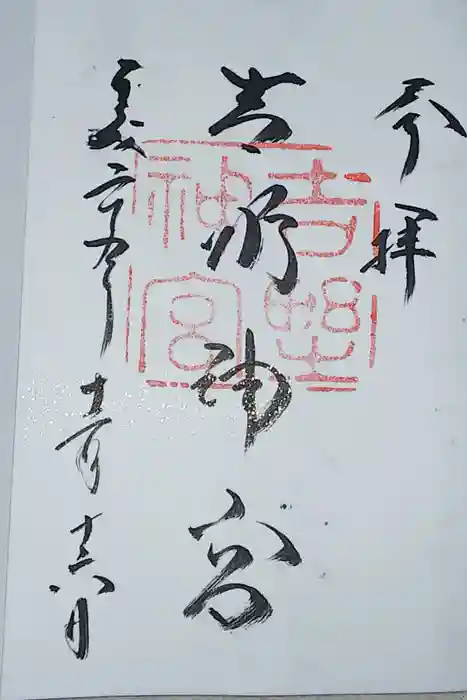 奉拝
吉野神宮
平成二十九年
吉野
神宮